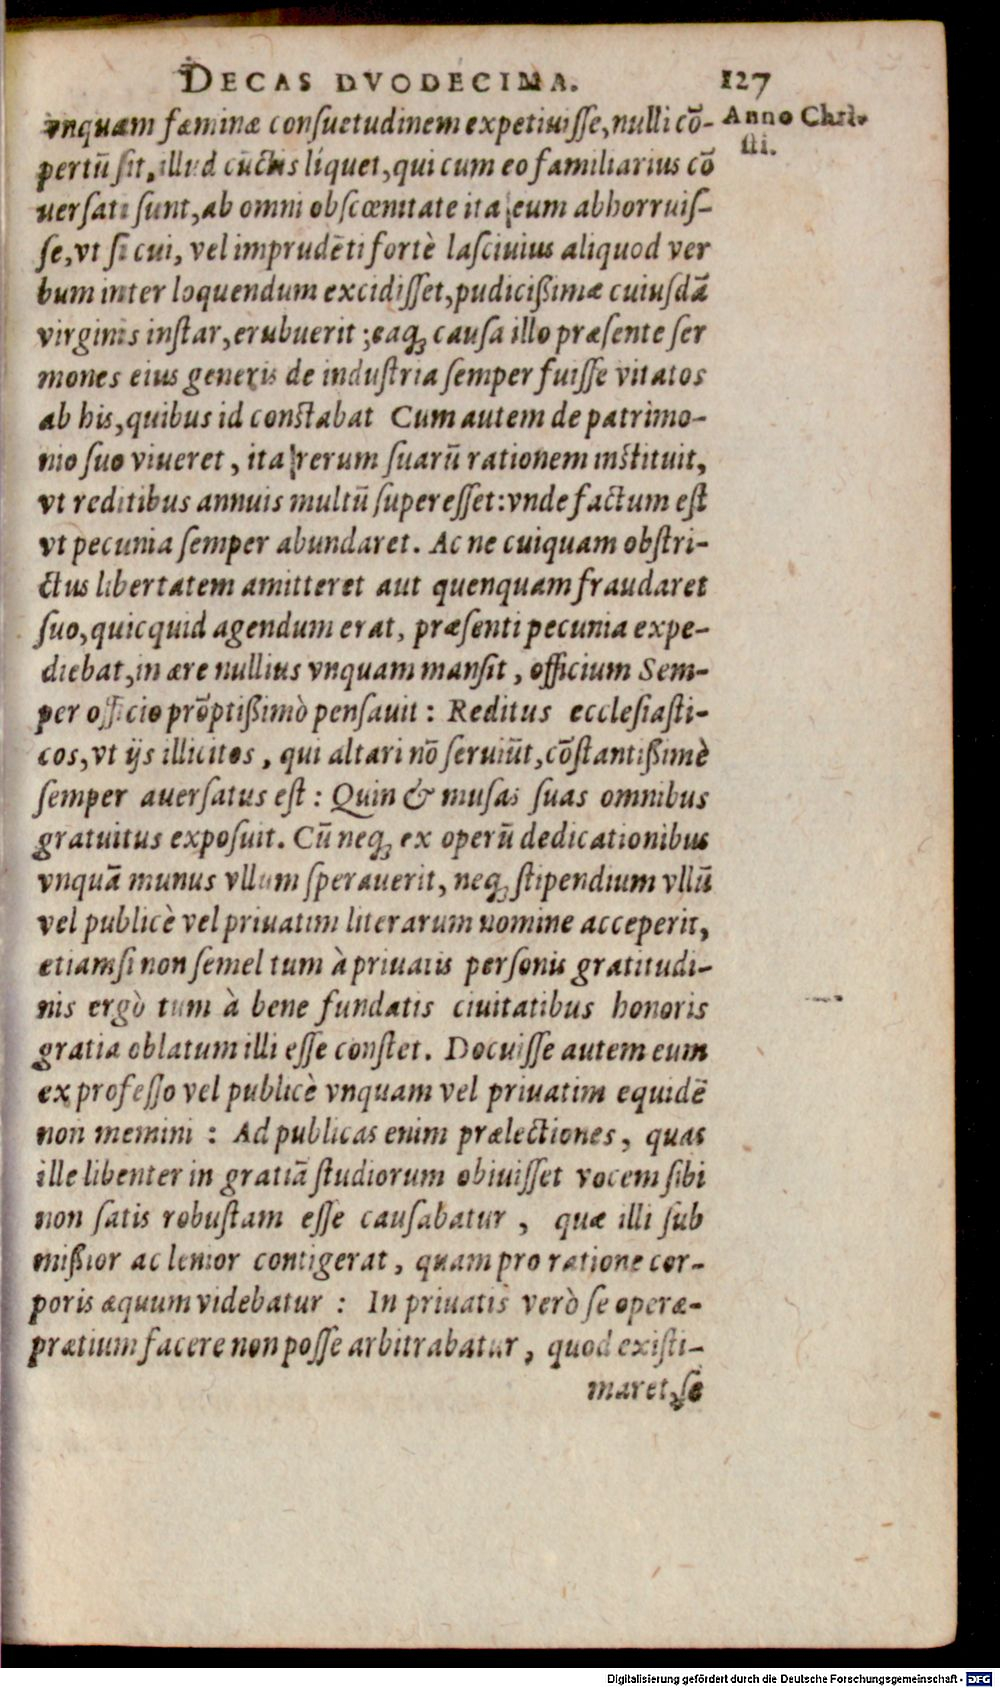 DECAS DVODECIMA. 127
vnquam fæminæ consuetudinem expetiuisse, nulli cõ- Anno Chri-
pertũ sit, illud cũctis liquet, qui cum eo familiarius cõ sti.
uersati sunt, ab omni obscœnitate ita eum abhorruis-
se, vt si cui, vel imprudẽti fortè lasciuius aliquod ver
bum inter loquendum excidisset, pudicißimæ cuiusdã
virginis instar, erubuerit; eaq; causa illo præsente ser
mones eius generis de industria semper fuisse vitatos
ab his, quibus id constabat Cum autem de patrimo-
nio suo viueret, ita rerum suarũ rationem instituit,
vt reditibus annuis multũ superesset: vnde factum est
vt pecunia semper abundaret. Ac ne cuiquam obstri-
ctus libertatem amitteret aut quenquam fraudaret
suo, quicquid agendum erat, præsenti pecunia expe-
diebat, in ære nullius vnquam mansit, officium Sem-
per officio prõptißimò pensauit: Reditus ecclesiasti-
cos, vt ijs illicitos, qui altari nõ seruiũt, cõstantißimè
semper auersatus est: Quin & musas suas omnibus
gratuitus exposuit. Cũ neq; ex operũ dedicationibus
vnquã munus vllum sperauerit, neq; stipendium vllũ
vel publicè vel priuatim literarum nomine acceperit,
etiamsi non semel tum à priuatis personis gratitudi-
nis ergò tum à bene fundatis ciuitatibus honoris
gratia oblatum illi esse constet. Docuisse autem eum
ex professo vel publicè vnquam vel priuatim equidẽ
non memini: Ad publicas enim prælectiones, quas
ille libenter in gratiã studiorum obiuisset vocem sibi
non satis robustam esse causabatur, quæ illi sub
mißior ac lenior contigerat, quam pro ratione cor-
poris æquum videbatur: In priuatis verò se operæ-
prætium facere non posse arbitrabatur, quod existi-
maret, se
Digitalisierung gefördert durch die Deutsche Forschungsgemeinschaft - DFG